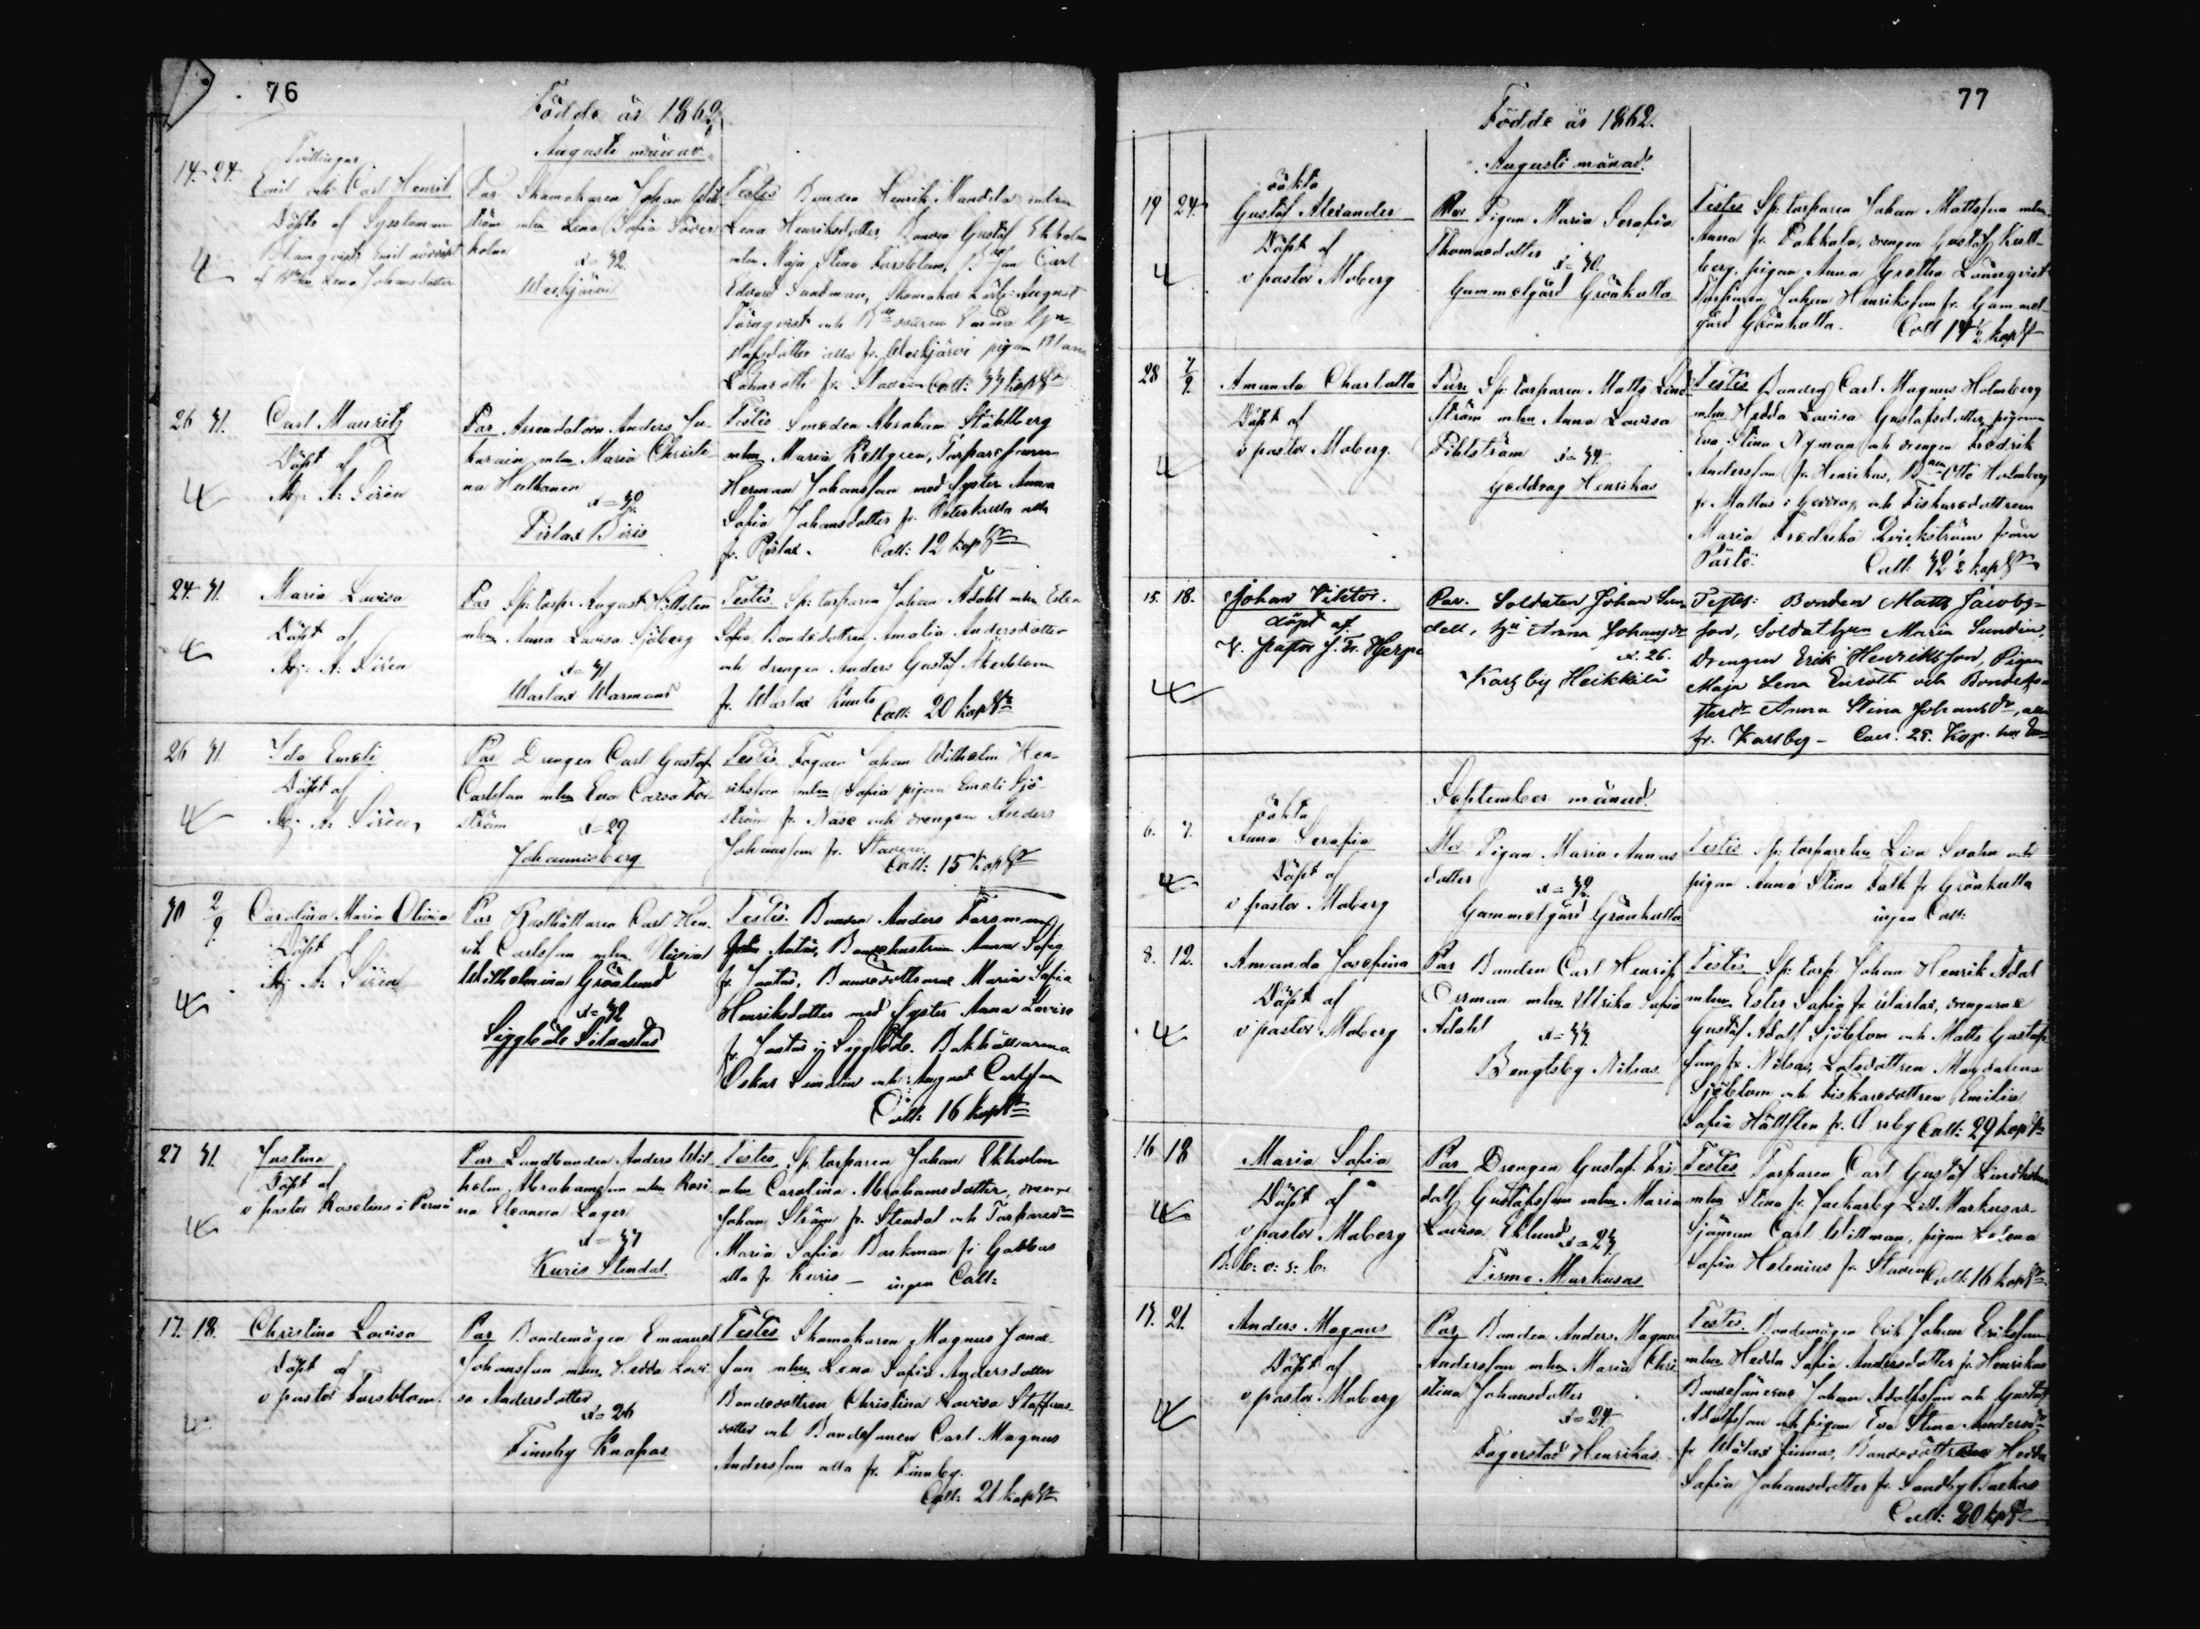 76
Födde år 1862
Augusti månad
14. 24.
Tvillingar
Emil och Carl Henrik
Döpte af
Emil
af Lena Johansdotter
Par Skomakaren Johan Wil-
ström mlm Lena Sofia Söder-
holm
x=32
Testis Bonden Henrik mlm
Lena Henriksdotter, Bonden Gustaf Ekholm
mlm Maja Stina Forsblom, Carl
Edvard Sundman, Skomakar Lärl: August
Törnqvist och Emma Gu-
stafsdotter alla fr. pigan
fr. Coll: 33 kop Sr
26 31.
Carl Mauritz
Döpt af
Adj: A: Sirén
Par Arrendatorn Anders
mlm Maria Christi-
na
x=30
Pirlax Böris
Testis Smeden Abraham Ståhlberg
mlm Maria Kellgren, Torparesonen
Herman Johansson med Syster Anna
Sofia Johansdotter fr. alla
fr. Coll: 12 kop Sr
24. 31.
Maria Lovisa
Döpt af
Adj: A: Sirén
Par Sp: torp: August Hällsten
mlm Anna Lovisa Sjöberg
x=31
Testis. Sp: torparen Johan Ådahl mlm
Sofia, Bondedottren Amalia Andersdotter
och drengen Anders Gustaf Åkerblom
fr. Coll: 20 kop Sr
26 31.
Ida Emeli
Döpt af
Adj: A: Sirén
Par Drengen Carl Gustaf
Carlsson mlm Eva Carva For-
ström
x=29
Johannisberg
Testis Johan Wilhelm Hen-
riksson mlm Sofia pigan Emeli Sjö-
ström fr. Näse och drengen Anders
Johansson fr. Staden.
Coll: 15 kop Sr
30 2/9.
Carolina Maria Olivia
Döpt af
Adj: A: Sirén
Par Rusthållaren Carl Hen-
rik Carlsson mlm Olivia
Wilhelmina Grönlund
x=32
Siggböle
Testis. Bonden Anders Forsman
Bondehustrun Anna Sofia
fr. Jontas, Bondedöttrarne Maria Sofia
Henriksdotter med syster Anna Lovisa
fr. Jontas i Siggböle. Bokhållarena
Oskar och August Carlsson
Coll: 16 kop Sr
27 31.
Justina
Döpt af
v pastor Roselius i Pernå
Par Landbonden Anders Wil-
helm Abrahamsson mlm Rosi-
na Eleonora Lager
x=37
Kuris Stendal.
Testes Sp: torparen Johan Ekholm
mlm Carolina Abrahamsdotter, drengen
Johan Ström fr. Stendal och Torpared:
Maria Sofia Barkman fr. Gabbas
alla fr. Kuris — ingen Coll:
17. 18.
Christina Lovisa
Döpt af
v pastor Forsblom.
Par Bondemågen Emanuel
Johansson mlm Hedda Lovi-
sa Andersdotter
x=26
Finnby Knapas
Testes Skomakaren Magnus Jons-
son mlm Lena Sofia Andersdotter
Bondedottren Christina Lovisa Staffans-
dotter och Bondesonen Carl Magnus
Andersson alla fr. Finnby.
Coll: 21 kop Sr
77
Födde år 1862.
Augusti månad.
19 24.
oäkta
Gustaf Alexander
Döpt af
v pastor Moberg
Mor Pigan Maria Serafia
Thomasdotter
x=30.
Gammelgård Grönkulla
Testes Sp: torparen Johan Mattsson mlm
Anna fr. Pokkala, drengen Gustaf Kull-
berg, pigan Anna Gretha Lönnqvist
Torparen Johan Henriksson fr. Gammel-
gård Grönkulla. Coll 14½ kop Sr
28 7/9.
Amanda Charlotta
Döpt af
v pastor Moberg.
Par. Sp: torparen Matts Lind-
ström mlm Anna Lovisa
Pihlström x=34.
Geddrag Henrikas
Testis Bonden Carl Magnus Holmberg
mlm Hedda Lovisa Gustafsdotter, pigan
Eva Stina Nyman och drengen Fredrik
Andersson fr. Henrikas, Otto Holmberg
fr. Mattas i Geddrag, och Fiskaredottren
Maria Fredrika Qvickström från
Pärtö. Coll: 32½ kop Sr
15. 18.
Johan Viktor.
döpt af
V. Pastor J. Fr. Hjerpe
Par. Soldaten Johan Sun-
dell, hu Anna Johansdr
x. 26.
Karsby Heikkilä
Testes: Bonden Matts Jacobs-
son, Soldathun Maria Sundin.
Drengen Erik Henriksson, Pigan
Maja Lena Enroth och Bonde
Anna Stina Johansdr, alla
fr. Karsby — Coll. 25. Kop.
September månad.
6. 7.
oäkta
Anna Serafia
Döpt af
v pastor Moberg
Mor Pigan Maria Annas
dotter
x=32
Gammelgård Grönkulla
Testis Sp: torparehu Lisa Svahn och
pigan Anna Stina Falk fr Grönkulla
ingen Coll:
8. 12.
Amanda Josefina
Döpt af
v pastor Moberg
Par Bonden Carl Henrik
Öhman mlm Ulrika Sofia
Ådahl
x=33.
Bengtsby Nilsas
Testis Sp: torp: Johan Henrik Ådal
mlm Ester Sofia fr. drengarne
Gustaf Adolf Sjöblom och Matts Gustafs-
son fr. Nilsas, Lotsdottren Magdalena
Sjöblom och fiskaredottren Emilia
Sofia Hällsten fr. Coll: 29 kop Sr
16 18
Maria Sofia
Döpt af
v pastor Moberg
B: b: o: s: b:
Par Drengen Gustaf Fri-
dolf Gustafsson mlm Maria
Lovisa Eklund x=23
Tirmo Markusas
Testes Torparen Carl Gustaf Lindholm
mlm Stina fr. Jackarby Lill Markusas
Sjöman Carl Wittman, pigan Helena
Sofia Helenius fr. Staden Coll: 16 kop Sr
17. 21.
Anders Magnus
Döpt af
v pastor Moberg
Par Bonden Anders Magnus
Andersson mlm Maria Chri-
stina Johansdotter
x=24.
Fagerstad Henrikas
Testis. Bondemågen Erik Johan Eriksson
mlm Hedda Sofia Andersdotter fr. Henrikas
Bondesönerne Johan Adolfsson och Gustaf
Adolfsson och pigan Eva Stina Andersdr
fr Bondedottren Hedda
Sofia Johansdotter fr. Sondby Backas
Coll: 30 kop Sr